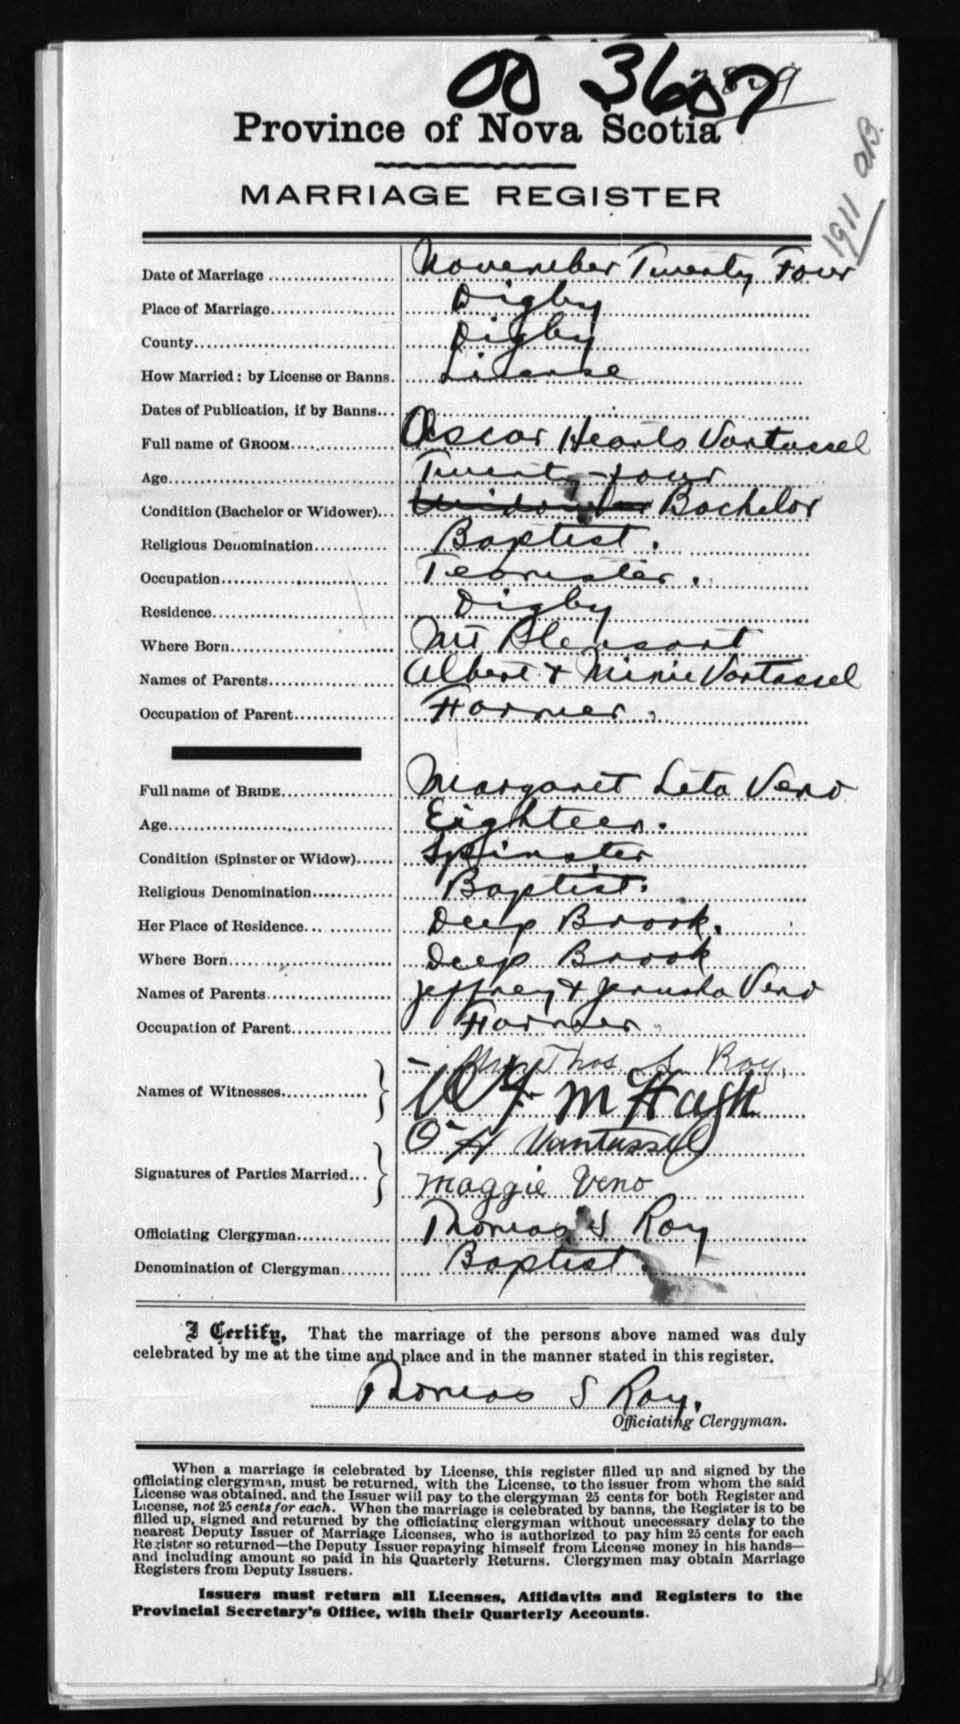 00 3607
Province of Nova Scotia
1911 AB.
MARRIAGE REGISTER
Date of Marriage November Twenty Four
Place of Marriage Digby
County Digby
How Married: by License or Banns. License
Dates of Publication, if by Banns...
Full name of GROOM Oscar Vantassel
Age Twenty-four
Condition (Bachelor or Widower)... Bachelor
Religious Denomination Baptist.
Occupation Teamster.
Residence Digby
Where Born Mt Pleasant
Names of Parents Albert & Minie Vantassel
Occupation of Parent Farmer.
Full name of BRIDE Margaret Leta Veno
Age Eighteen.
Condition (Spinster or Widow) Spinster
Religious Denomination Baptist.
Her Place of Residence Deep Brook.
Where Born Deep Brook
Names of Parents Jeffrey & Jerusha Veno
Occupation of Parent Farmer
Mrs Thos. S. Roy.
Names of Witnesses McHugh
O H Vantassel
Signatures of Parties Married...
Maggie Veno
Officiating Clergyman Thomas S Roy
Denomination of Clergyman Baptist.
I Certify, That the marriage of the persons above named was duly
celebrated by me at the time and place and in the manner stated in this register.
Thomas S Roy.
Officiating Clergyman.
When a marriage is celebrated by License, this register filled up and signed by the
officiating clergyman, must be returned, with the License, to the issuer from whom the said
License was obtained, and the Issuer will pay to the clergyman 25 cents for both Register and
License, not 25 cents for each. When the marriage is celebrated by banns, the Register is to be
filled up, signed and returned by the officiating clergyman without unnecessary delay to the
nearest Deputy Issuer of Marriage Licenses, who is authorized to pay him 25 cents for each
Register so returned—the Deputy Issuer repaying himself from License money in his hands—
and including amount so paid in his Quarterly Returns. Clergymen may obtain Marriage
Registers from Deputy Issuers.
Issuers must return all Licenses, Affidavits and Registers to the
Provincial Secretary's Office, with their Quarterly Accounts.